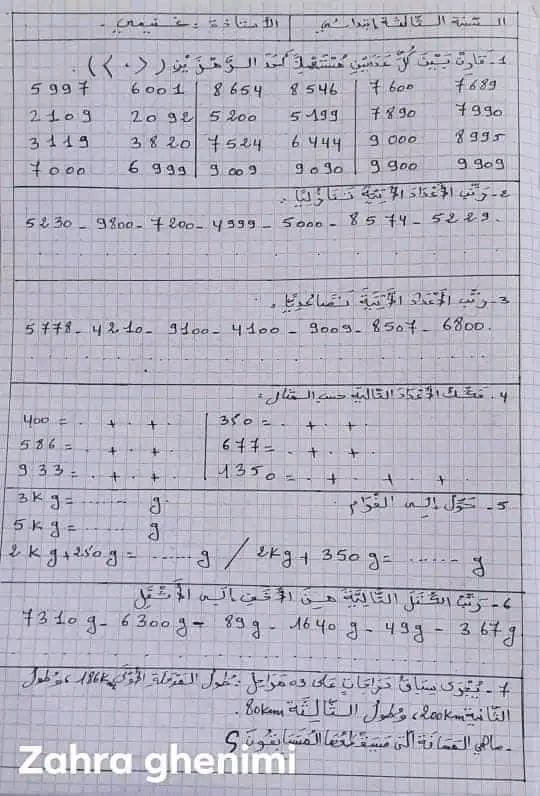 السنة الثالثة ابتدائي الأستاذة: غنيمي.
1- قارن بين كل عددين مستعملا أحد الرمزين (> ، <).
5997 6001 8654 8546 7600 7689
2109 2092 5200 5199 7890 7990
3119 3820 7524 6444 9000 8995
7000 6999 9009 9090 9900 9909
2- رتب الأعداد الآتية تنازليا.
5230 - 9800 - 7200 - 4999 - 5000 - 8574 - 5229.
3- رتب الأعداد الآتية تصاعديا.
5778 - 4210 - 9100 - 4100 - 9009 - 8507 - 6800.
4. فكك الأعداد التالية حسب المثال:
400 = . + . + . 350 = . + . + .
586 = . + . + . 677 = . + . + .
933 = . + . + . 1350 = . + . + . + .
5- حول إلى الغرام.
3kg = ...... g
5kg = ...... g
2kg + 250g = ...... g / 2kg + 350g = ...... g
6- رتب الكتل التالية من الأخف إلى الأثقل
7310g - 6300g - 89g - 1640g - 49g - 367g
7- يجرى سباق دراجات على 03 مراحل: طول المرحلة الأولى 186k، وطول
الثانية 200km، وطول الثالثة 80km.
- ماهي المسافة التي سيقطعها المتسابقون؟
Zahra ghenimi